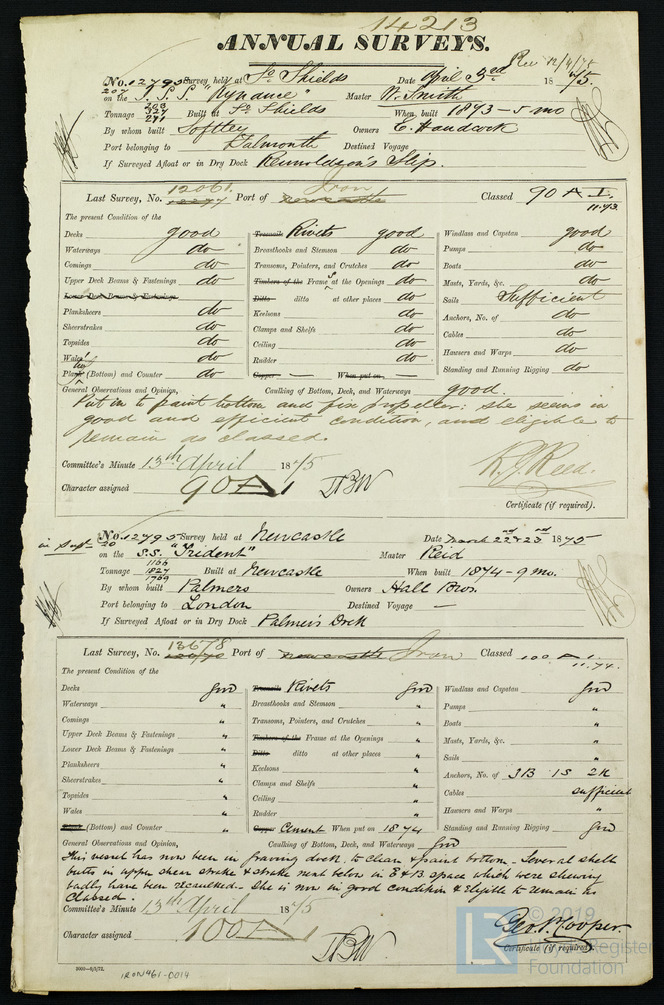 14213
ANNUAL SURVEYS.
Rec 12/4/75
No. 12795 Survey held at So. Shields Date April 3rd 1875.
207 on the S.S. "Rynance" Master W. Smith
Tonnage 203 327 271 Built at So. Shields When built 1873-5 mo
By whom built Softley Owners C. Handcock
Port belonging to Falmouth Destined Voyage
If Surveyed Afloat or in Dry Dock Reunoldson's Slip.
Last Survey, No. 12061 Port of Newcastle Iron Classed 90 A 1. 11.73.
The present Condition of the
Decks good Treenails Rivets good Windlass and Capstan good
Waterways do Breasthooks and Stemson do Pumps do
Comings do Transoms, Pointers, and Crutches do Boats do
Upper Deck Beams & Fastenings do Timbers of the Frames at the Openings do Masts, Yards, &c. do
Lower Deck Beams & Fastenings Ditto ditto at other places do Sails Sufficient
Planksheers do Keelsons do Anchors, No. of do
Sheerstrakes do Clamps and Shelfs do Cables do
Topsides do Ceiling do Hawsers and Warps do
Wales do Rudder do Standing and Running Rigging do
Plank (Bottom) and Counter do Copper — When put on —
General Observations and Opinion, Caulking of Bottom, Deck, and Waterways good.
Put in to paint bottom and fix propeller: she seems in
good and efficient condition, and eligible to
remain as classed.
Committee's Minute 13th April 1875
R. J. Reed.
Character assigned 90 A 1 TBW
Certificate (if required).
No. 12795 Survey held at Newcastle Date March 22nd & 23rd 1875
in Sup 20 on the S.S. "Trident" Master Reid
Tonnage 1166 1827 1769 Built at Newcastle When built 1874 - 9 mo.
By whom built Palmers Owners Hall Bros.
Port belonging to London Destined Voyage —
If Surveyed Afloat or in Dry Dock Palmer's Dock
Last Survey, No. 13678 Port of Newcastle Iron Classed 100 A 1. 11.74.
The present Condition of the
Decks good Treenails Rivets good Windlass and Capstan good
Waterways " Breasthooks and Stemson " Pumps "
Comings " Transoms, Pointers, and Crutches " Boats "
Upper Deck Beams & Fastenings " Timbers of the Frame at the Openings " Masts, Yards, &c. "
Lower Deck Beams & Fastenings " Ditto ditto at other places " Sails "
Planksheers " Keelsons " Anchors, No. of 3B 1S 2K
Sheerstrakes " Clamps and Shelfs " Cables sufficient
Topsides " Ceiling " Hawsers and Warps "
Wales " Rudder " Standing and Running Rigging good
Plank (Bottom) and Counter " Copper Cement When put on 1874
General Observations and Opinion, Caulking of Bottom, Deck, and Waterways good
This vessel has now been in graving dock to clean & paint bottom - Several shell
butts in upper shear strake & strake next below in E & B space which were shewing
badly have been recaulked - She is now in good condition & eligible to remain as
Classed.
Committee's Minute 13th April 1875
Geo. P. Cooper.
Character assigned 100 A 1 TBW
Certificate (if required).
2000-6/5/72.
IRON461-0014
LR © 2019
Lloyd's Register
Foundation